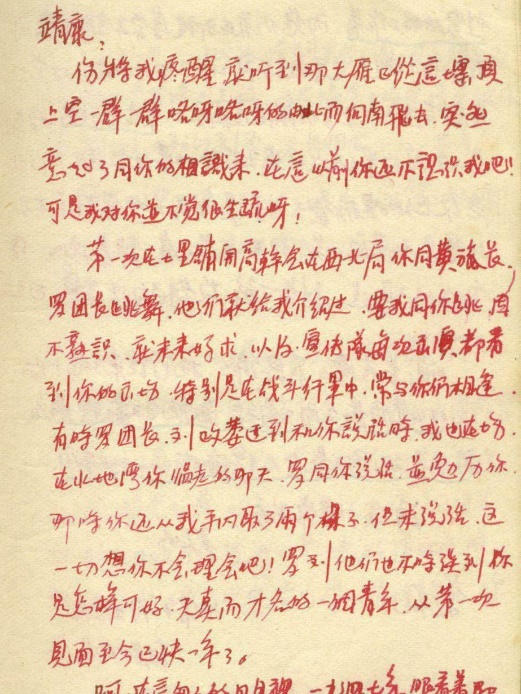 靖康:
伤将我疼醒,就听到那大雁已從這壩頂
上空一群群咯呀咯呀的由北而向南飛去,突然
意起了同你的相識来,在這以前你还不認识我吧!
可是我对你並不觉很生疏呀!
第一次在七里鋪開高幹会在西北局你同黄旅长、
罗团长跳舞,他们就给我介绍过,要我同你跳,因
不熟識,就未来好求,以后宣传隊每次出演都看
到你的出場,特别是在战斗行軍中,常与你们相逢,
有時罗团长、刘政委遇到和你説話時,我也在場,
在北地湾你临走的那天,罗同你说话,並勉历你,
那時你还从我手内取了兩个襟子,但未说话,这
一切想你不会理会吧!罗刘他们也不時谈到你
是怎样可好,天真而才名的一個青年,从第一次
見面至今已快一年了。